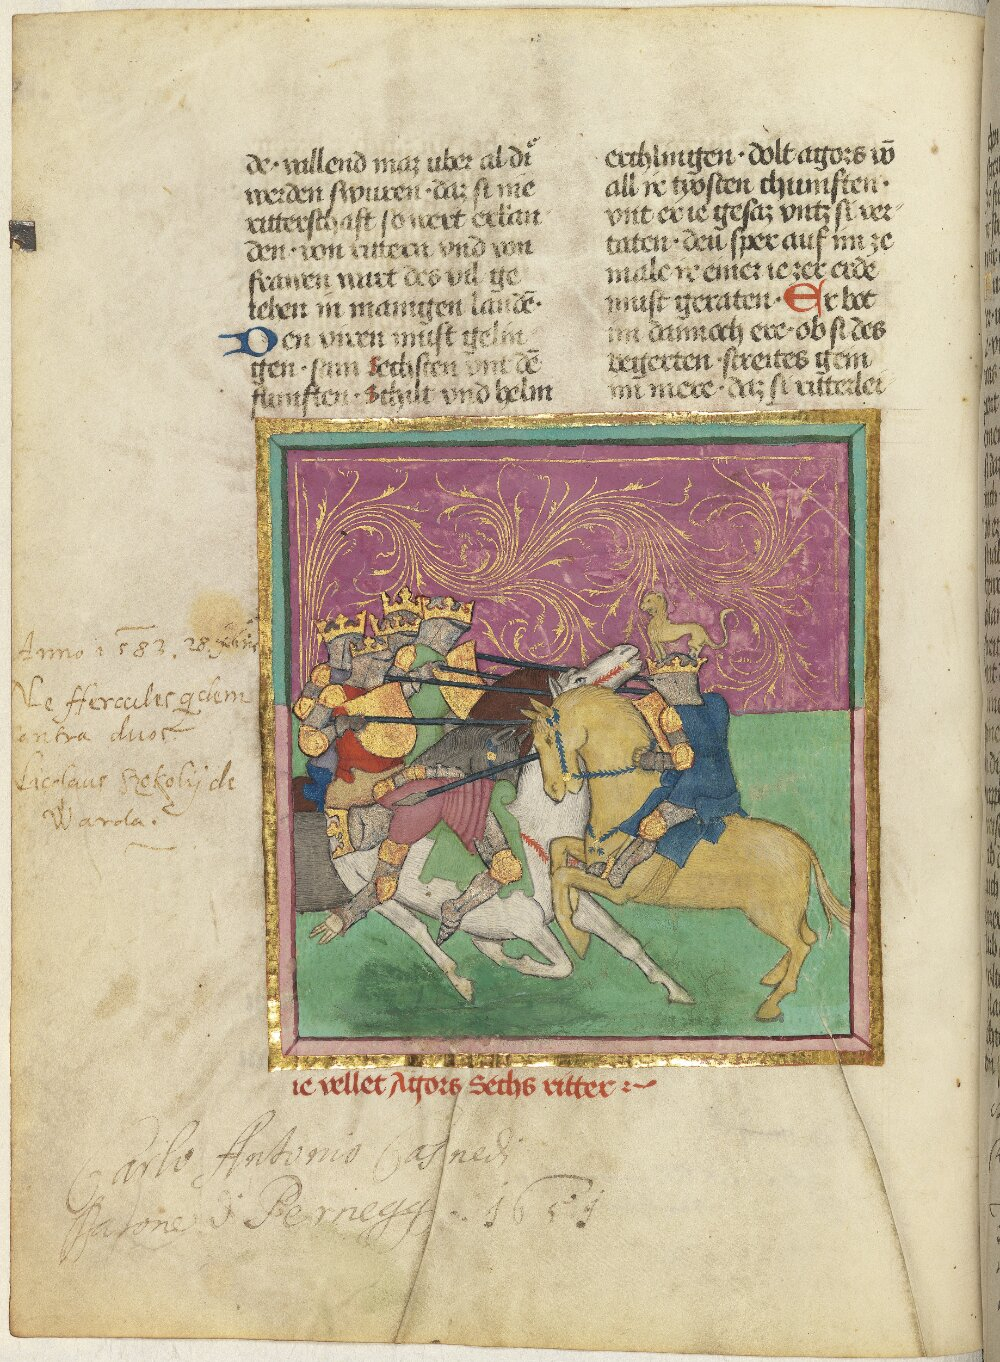 de · willend maz uber al di
werden swuren · daz si nie
ritterschaft so wert erkan
den · von rittern vnd von
frawen wart des vil ge
leben in manigen landē ·
Den viren must gelin
gen · sam sechsten vnt dē
flunften · schilt vnd helm
erchlingen · dolt agors vō
all ir tyosten chumften ·
vnt er ie gesaz vntz si ver
taten · deu sper auf im ze
male ir einer ie zer erde
must geraten · Er bot
im dannoch ere · ob si des
begerten · streites gern
im mere · daz si ritterlei
ie vellet Agors Sechs ritter
Anno 1583. 28
Ve Hercules qidem
contra duos
Nicolaus Zekolÿ de
Warda.
Carlo Antonio Casnedi
Barone di Pernegg · 1651